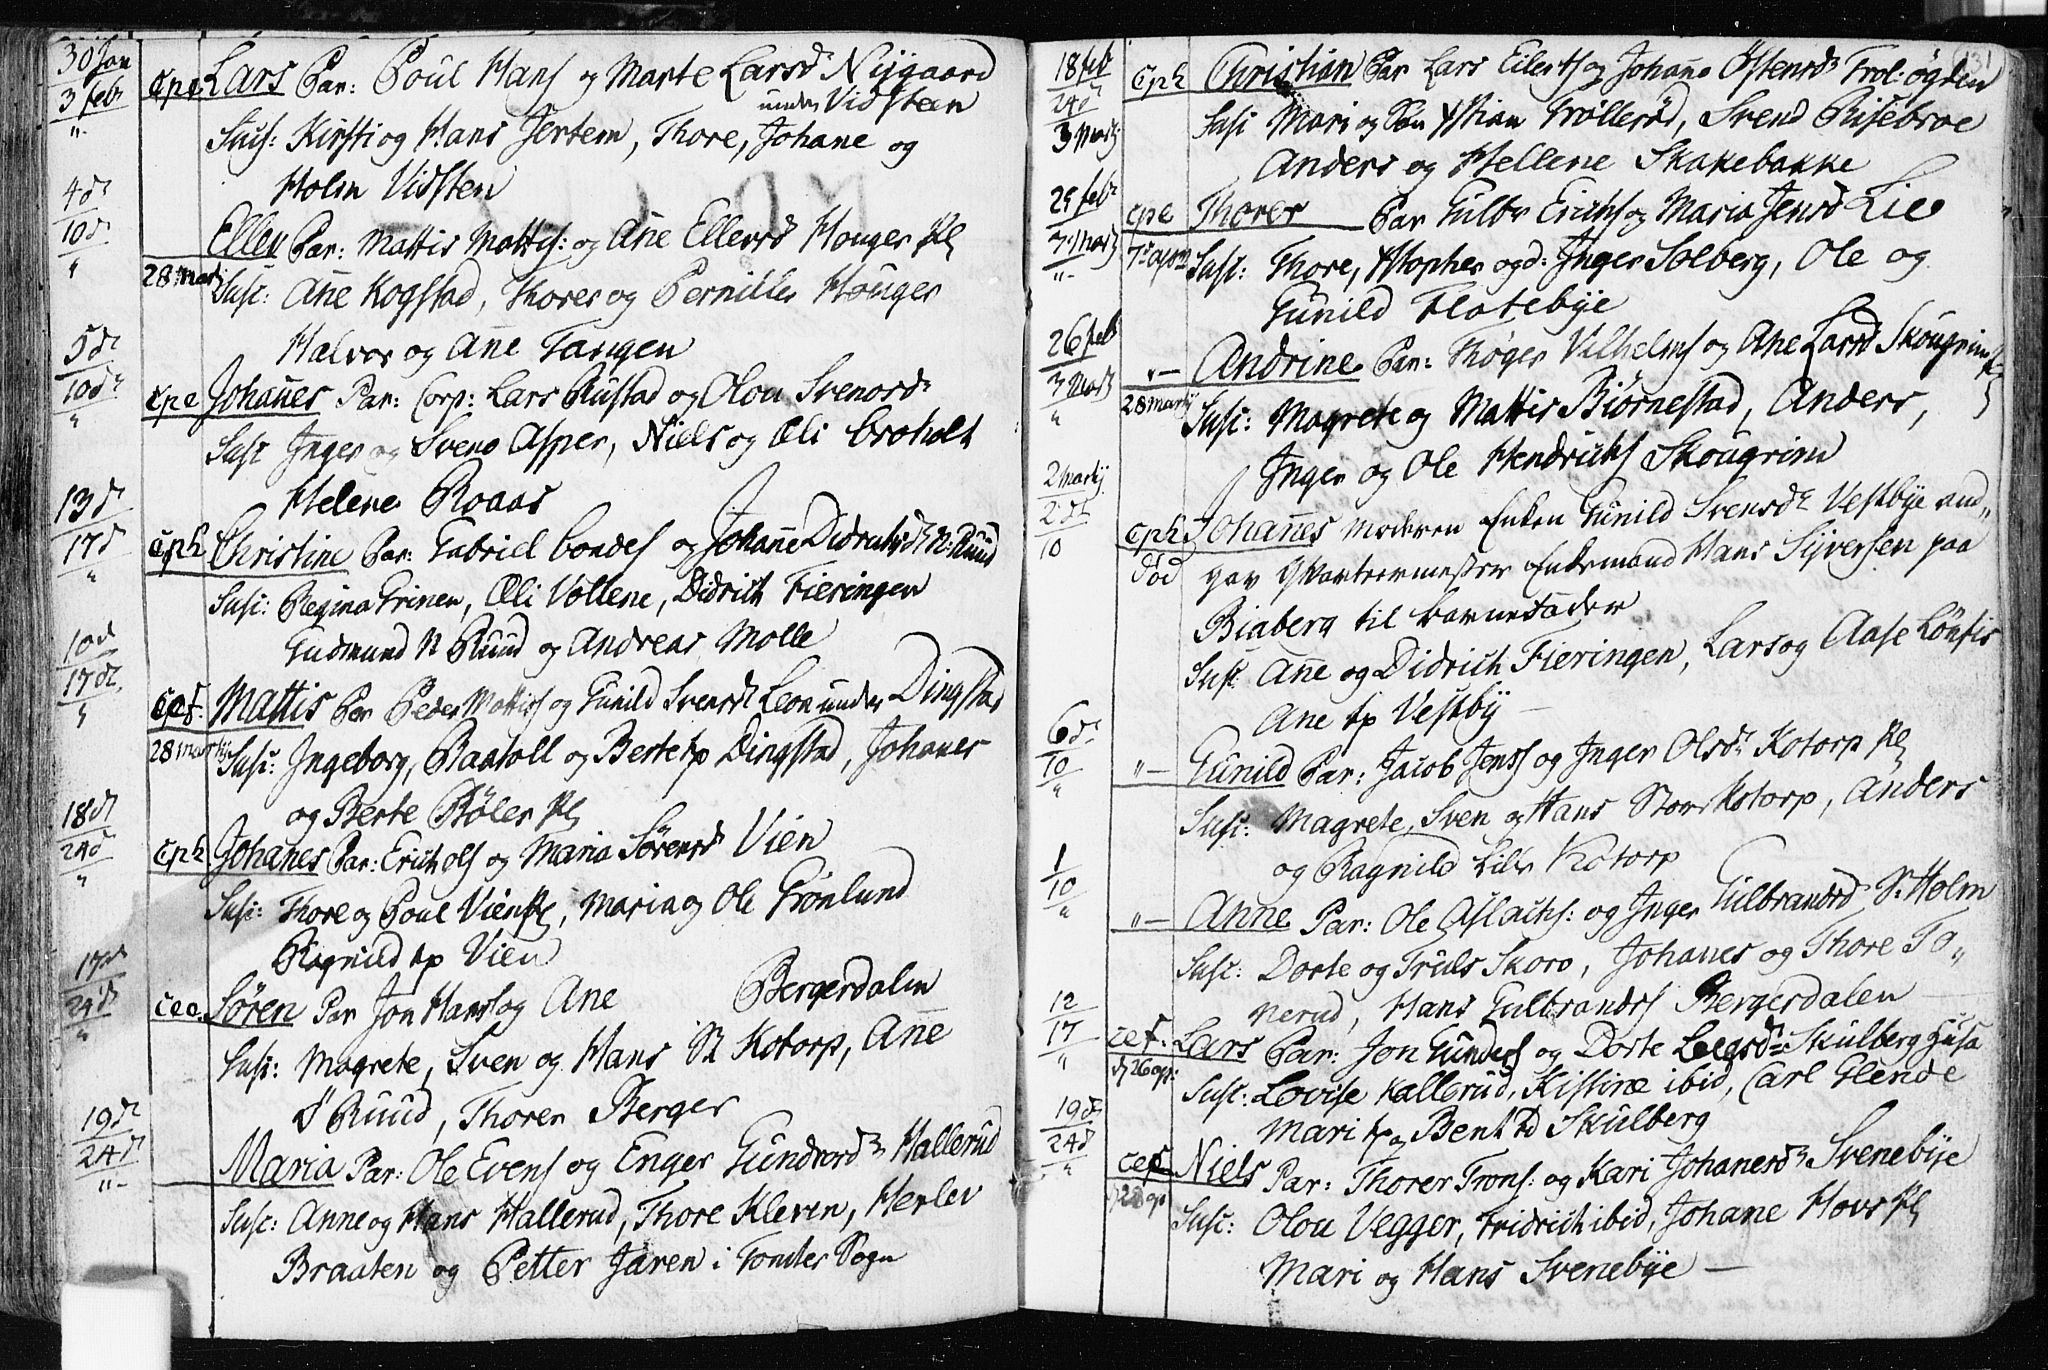 30 Jan
3 febr
Cpe. Lars Par: Poul Hans og Marte Larsdr Nÿgaard
under Vidsteen
Susc: Kirsti og Hans Jertem, Thore, Johane og
Holm Vidsten
4 dr
10 d
Ellev Par: Mattis Mattis: og Ane Ellevsd Houger Pl
28 Martij Susc: Ane Kogstad, Thorer og Pernille Houger
Halvor og Ane Tangen
5 dr
10 dr
cpe Johanes Par: Corp: Lars Rustad og Olou Svensdr
Susc Inger og Sveno Asper, Niels og Æli broholt
Helene Roaas
13 d
17 d
cph Christine Par: Gabriel bondes og Johane Didrichsdr N: Ruud
Susc: Regina Grinen, Æli Vollene, Didrich Fieringen
Gudmund N Ruud og Andreas Molle
10 d
17 dr.
cef. Mattis Par Peder Mattis og Gunild Svensdr Leon under Dingstad
28 martij Susc: Ingeborg, Raatoll og Berte tp Dingstad, Johanes
og Berte Böler Pl
18 dr
24 d
cph Johanes Par: Erich Ols og Maria Sörensd Vien
Susc: Thore og Poul Vien Pl, Maria og Ole Grönlund
Ragnild tp Vien
17 dr
24 d
cea. Sören Par Jon Hans og Ane Bergerdalen
Susc: Magrete, Sven og Hans St Kotorp, Ane
S Ruud, Thorer Berger
19 dr
24 d
Maria Par: Ole Evens og Enger Gundrosdr Hallerud
Susc: Anne og Hans Hallerud, Thore Kleven, Herlev
Braaten og Petter Jaren i Tomter Sogn
131
18 feb
24 dr
3 Martj
cph Christian Par Lars Eilerts og Johane Östensdr Trol: ögden
Susc Mari og Xstian Tröllerød, Svend Risebroe
Anders og Hellene Skakebakke
25 febr
3 Martj
cpe Thorer Par Gulbr Erichs og Maria Jensd Lie
Susc: Thore, Xstopher og d: Inger Solberg, Ole og
Gunild Flatebÿe
26 feb
3 Martj
Andrine Par: Thøger Vilhelms og Ane Larsd Skougrim Pl
28 martij Susc: Magrete og Mattis Biörnestad, Anders,
Inger og Ole Hendrichs Skougrim
2 Martij
2 dr
10
cph Johanes Moderen Enken Gunild Svensdr Vestbÿe ud„
död gav Qvarteermester Enkemand Hans Sÿversen paa
Biaberg til barnefader
Susc: Ane og Didrich Fieringen, Lars og Aase Löntis
Ane tp Vestbÿ
6 dr
10
Gunild Par: Jacob Jens og Inger Olsdr Kotorp Pl
Susc: Magrete, Sven og Hans Storkotorp, Anders
og Ragnild Lille Kotorp
1
10
Anne Par: Ole Aslachs: og Inger Gulbransd S: Holm
Susc: Dorte og Truls Skoro, Johanes og Thore To„
nerud, Hans Gulbrands Bergerdalen
12
17
cef. Lars Par: Jon Gunders og Dorte Leersdr Skulberg Husa
Susc: Lovise Kallerud, Kistinæ ibid, Carl Glende
Mari tp og Bent td Skulberg
19 dr
24 d
cef Niels Par: Thorer Trons: og Kari Johanesdr Svenebÿe
Susc: Olou Vegger, Fridrich ibid, Johane Hovs Pl
Mari og Hans Svenebÿe